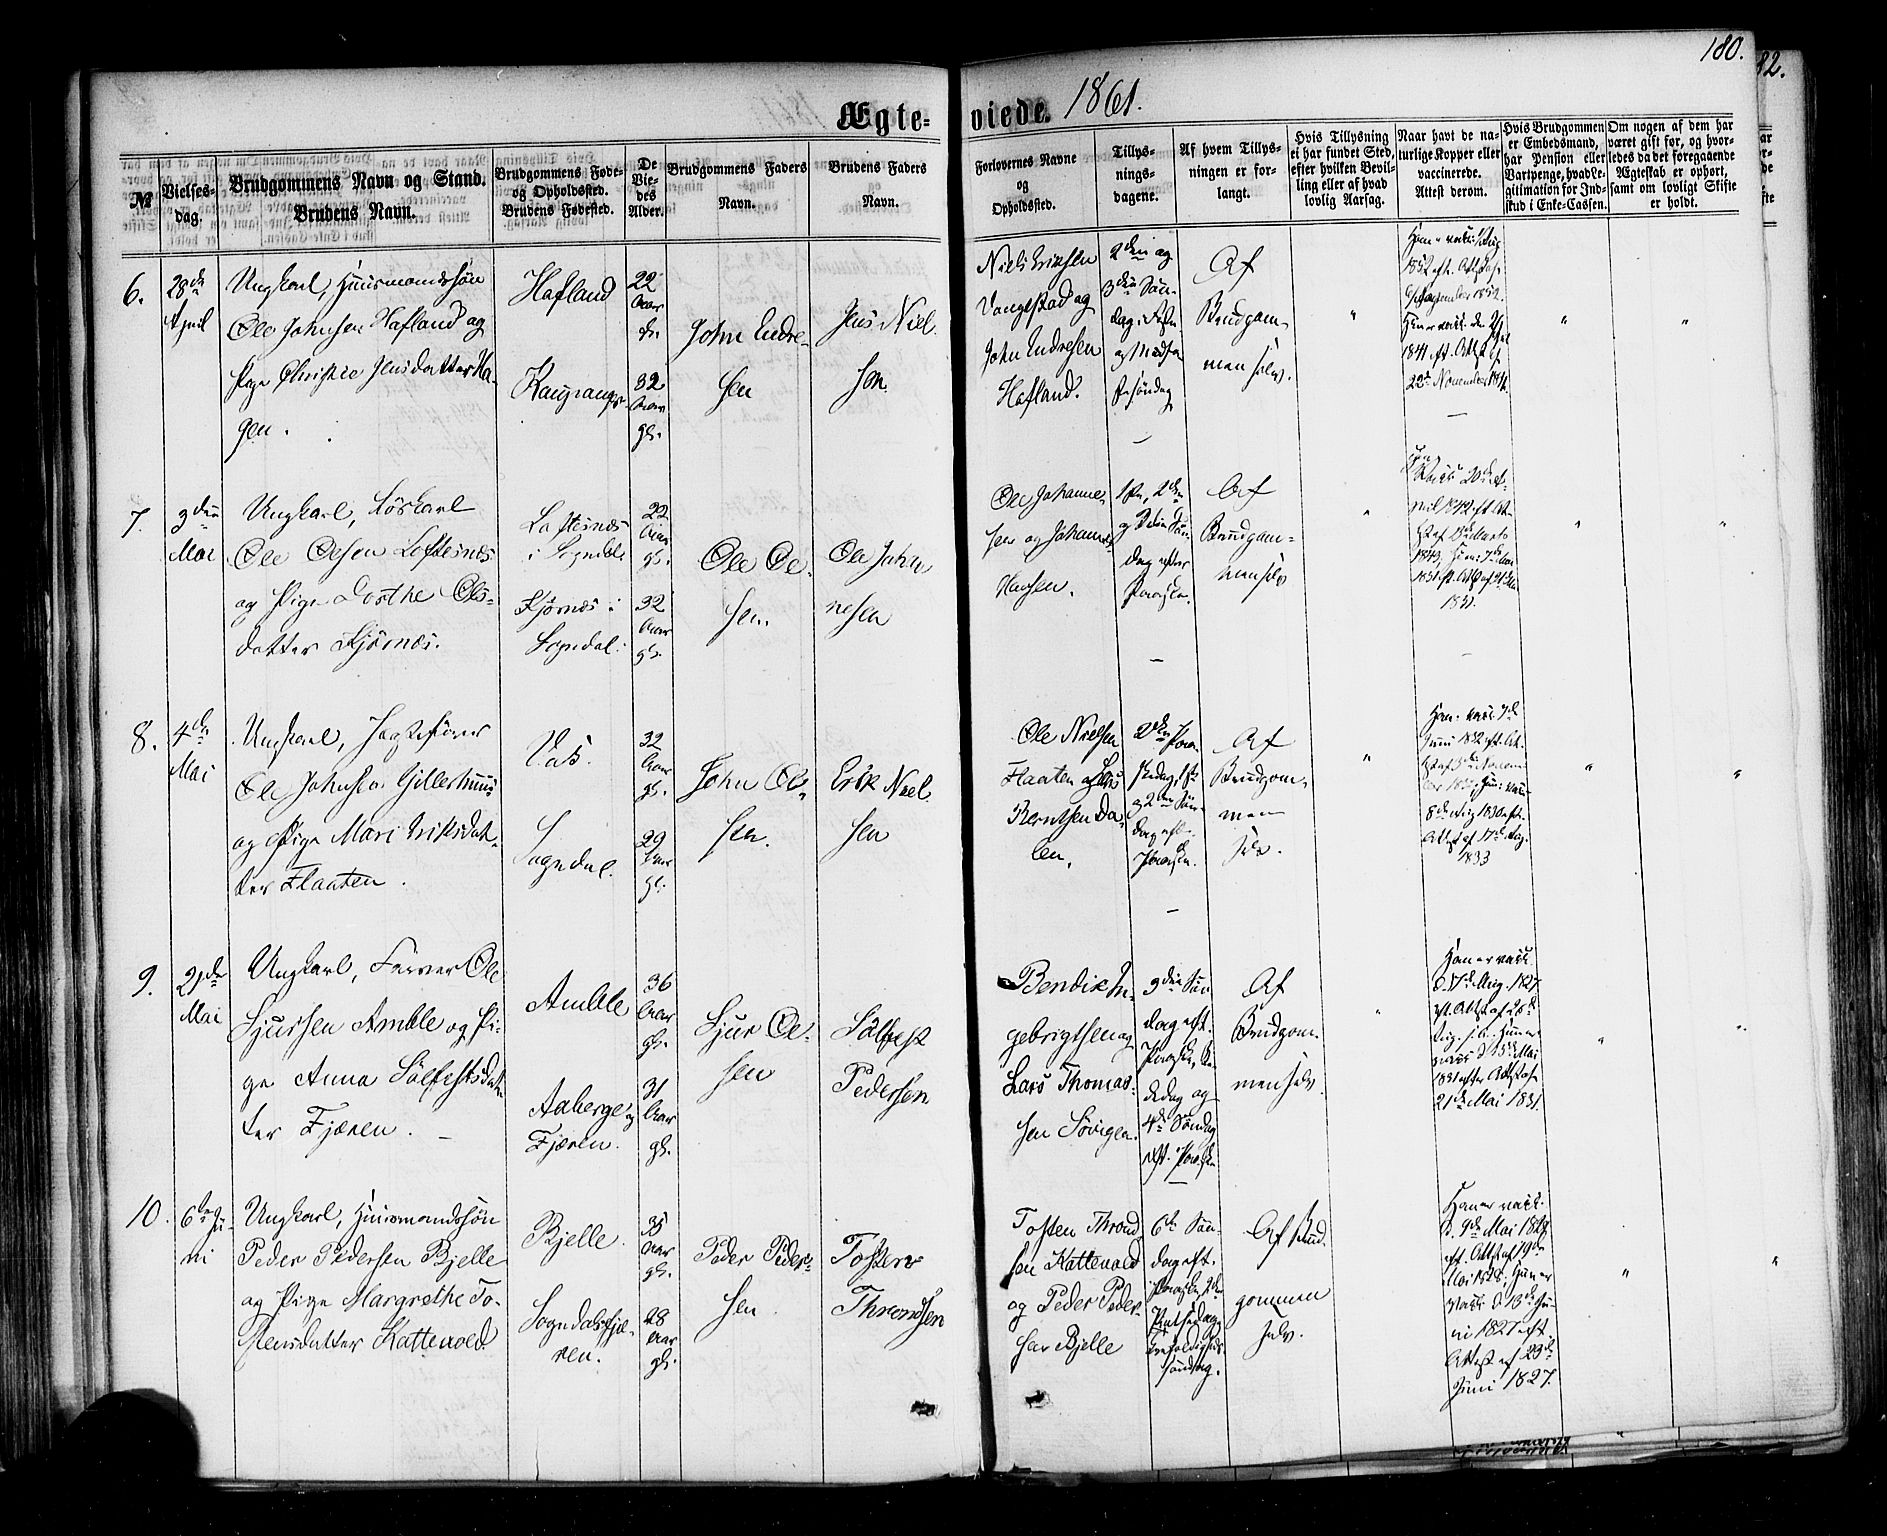 180.
82.
Ægte-
viede. 1861.
№
Vielses-
dag.
Brudgommens Navn og Stand.
Brudens Navn.
Brudgommens Føde-
og Opholdssted.
Brudens Fødested.
De
Vie-
des
Alder.
Brudgommens Faders
Navn.
Brudens Faders
Navn.
Forlovernes Navne
og
Opholdssted.
Tillys-
nings-
dagene.
Af hvem Tillys-
ningen er for-
langt.
Hvis Tillysning
ei har fundet Sted,
efter hvilken Bevil-
ling eller af hvad
lovlig Aarsag.
Naar havt de na-
turlige Kopper eller
vaccinerede.
Attest derom.
Hvis Brudgommen
er Embedsmand,
har Pension eller
Vartpenge, hvad Le-
gitimation for Ind-
skud i Enke-Cassen.
Om nogen af dem har
været gift før, og hvor-
ledes da det foregaaende
Ægteskab er ophørt,
samt om lovligt Skifte
er holdt.
6.
28de
April
Ungkarl, Huusmandssøn
Ole Johnsen Hafland og
Pige Christie Jensdatter Ha-
gen.
Hafland
Kaupanger
22
Aar
gl.
32
Aar
gl.
John Endre-
sen
Jens Niel-
sen
Niels Eriksen
Vangestad og
John Endresen
Hafland.
2den og
3die Søn-
dag i Faste
og Midfa-
stesøndag
Af
Brudgom-
men selv.
22de November
7.
3die
Mai
Ungkarl, Løskarl
Ole Olesen Loftesnæs
og Pige Dorthe Ols-
datter Stjørnæs.
Loftesnæs
i Sogndal
Stjørnæs i
Sogndal.
22
Aar
gl.
32
Aar
gl.
Ole Ole-
sen.
Ole Johan
nesen
Ole Johanne-
sen og Johannes
Hansen.
1ste, 2den
og 3die Søn-
dag efter
Paaske.
Af
Brudgom-
men selv
8.
4de
Mai
Ungkarl, Jagtefører
Ole Johnsen Gillerhuus
og Pige Mari Eriksdat-
ter Flaaten.
Vats.
Sogndal.
32
Aar
gl.
29
Aar
gl.
John Ol-
sen.
Erik Niel-
sen
Ole Nielsen
Flaaten og Lars
Berntsen Da-
len.
2den Paa-
skedag, 1ste
og 2den Søn-
dag eft.
Paaske.
Af
Brudgom-
men
selv.
8de Aug 1830 eft.
Attst af 17de Aug.
1833
9.
21de
Mai
Ungkarl, Farver Ole
Sjursen Amble og Pi-
ge Anna Sølfestsdat-
ter Fjæren.
Amble
Aaberge og
Fjæren.
36
Aar
gl.
31
Aar
gl.
Sjur Ole-
sen
Sølfest
Pedersen
Bendik In-
gebrigtsen og
Lars Thomas-
sen Søvigen.
3die Søn-
dag eft.
Paaske, Be-
dedag og
4de Søndag
eft. Paaske
Af
Brudgom-
men selv.
Han er vacc.
d. 17de Aug. 1827
eft. Attst af 26de
Aug. s. A. Hun er
vacc d 15de Mai
1831 efter Attst af
21de Mai 1831.
10.
6te Ju-
ni
Ungkarl, Huusmandssøn
Peder Pedersen Bjelle
og Pige Margrethe To-
stensdatter Kattevold
Bjelle.
Sogndalsfjæ-
ren.
35
Aar
gl.
28
Aar
gl.
Peder Peder-
sen.
Tosten
Throndsen
Tosten Thrond-
sen Kattevold
og Peder Peder-
sen Bjelle
6te Søn-
dag eft.
Paaske, 2den
Pintsedag,
Trefoldigheds
søndag.
Af Brud-
gommen
selv.
Han er vacc.
d. 9de Mai 1828
eft. Attst af 19de
Mai 1828; Hun er
vacc d 13de Ju-
ni 1827 eft.
Attest af 23de
Juni 1827.